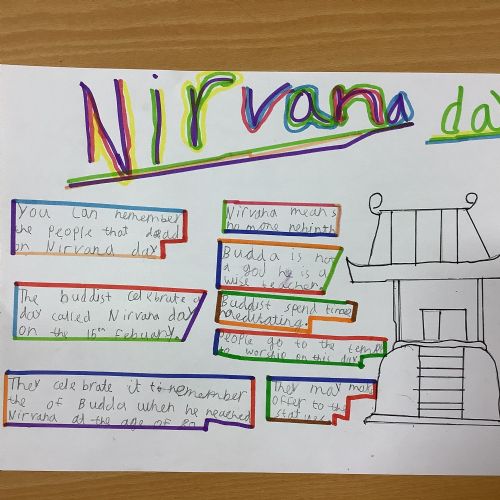 Nirvana day
You can remember
the people that deaed
on Nirvana day
The buddist celebrate a
day called Nirvana day
on the 15th Febuary.
They celebrate it to remember
the of Budda when he reached
Nirvana at the age of 80
Nirvana means
no more rebirth
Budda is not
a god he is a
wise teacher.
Buddist spend time
meditating.
People go to the temple
to worship on this day
They may make
offer to the
statues